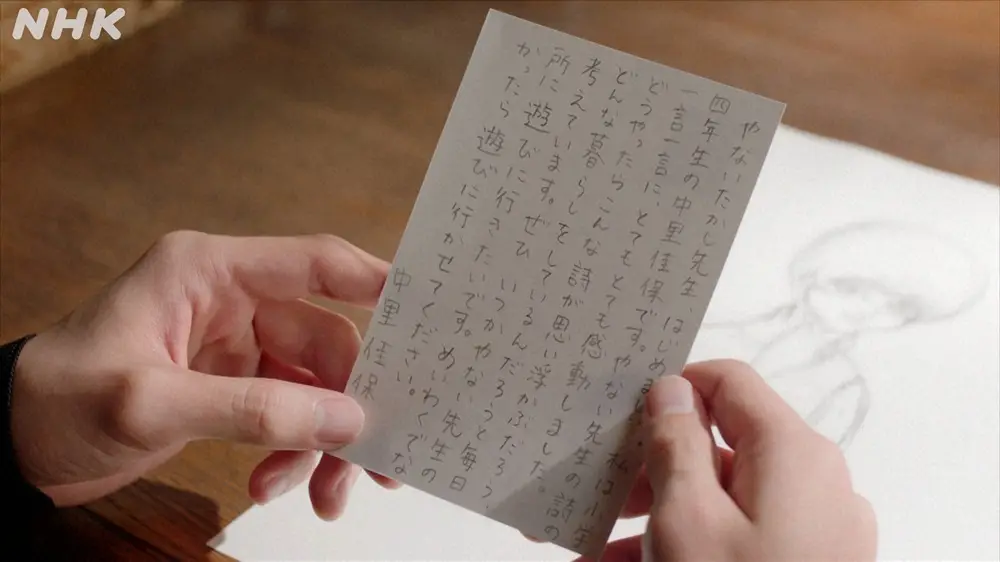 NHK
やないたかし先生、はじめまして。私は小学
四年生の中里佳保です。やない先生の詩の
一言一言に、とてもとても感動しました。
どうやったらこんな詩が思い浮かぶだろう、
どんな暮らしをしているんだろうと毎日
考えています。ぜひ いつか やない先生の
所に遊びに行きたいです。めいわくでな
かったら遊びに行かせてください。
中里佳保